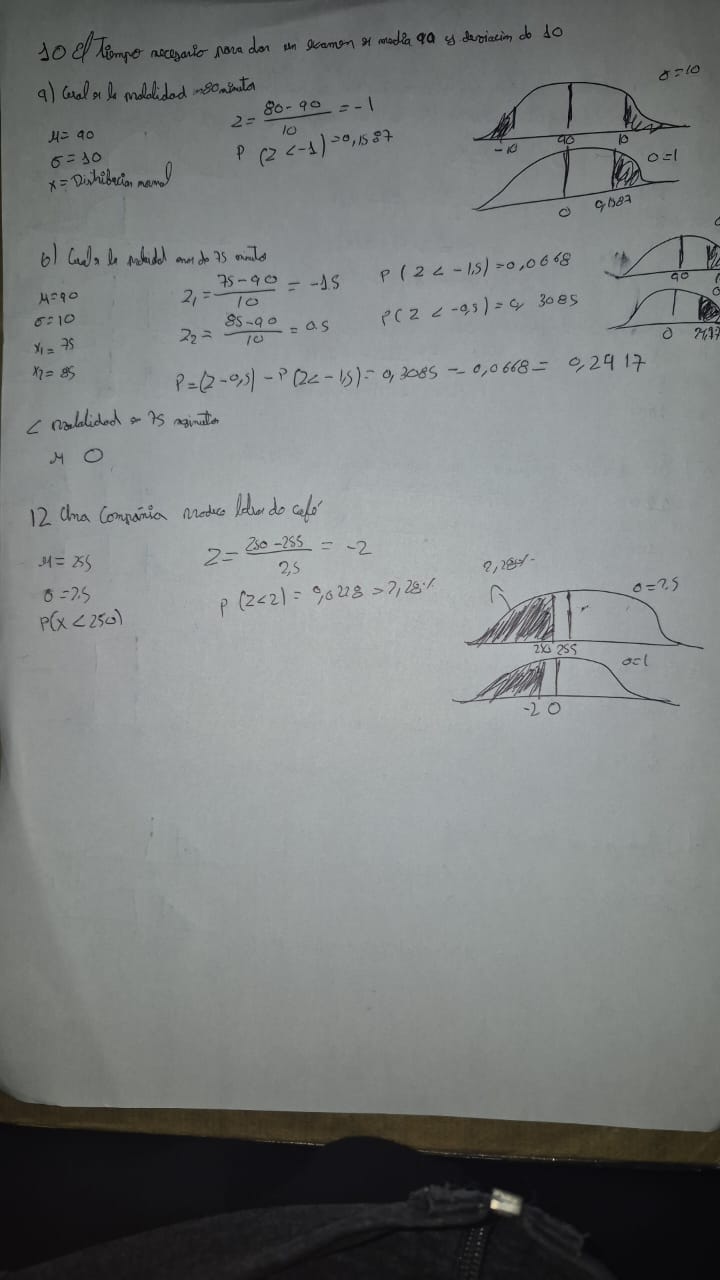 10 El Tiempo necesario para dar un examen es media 90 y desviacion de 10
a) Cual es la probabilidad 80 minutos
μ = 90
σ = 10
x = Distribucion normal
Z = 80-90 / 10 = -1
P (Z < -1) = 0,1587
σ = 10
-10 90 10
σ = 1
0 0,1587
b) Cual es la de 75 minutos
μ = 90
σ = 10
x1 = 75
x2 = 85
Z1 = 75-90 / 10 = -1.5
Z2 = 85-90 / 10 = 0.5
P ( Z < -1,5) = 0,0668
P ( Z < -0,5 ) = 0, 3085
P = (Z -0,5) - P (Z < -1,5) = 0,3085 - 0,0668 = 0,2417
90
0
c probabilidad 75 minutos
μ 0
12 Una Compañia de café
μ = 255
σ = 2.5
P(X < 250)
Z = 250-255 / 2,5 = -2
P (Z<2) = 0,0228 > 2,28%
2,28%
σ = 2.5
250 255
σ = 1
-2 0